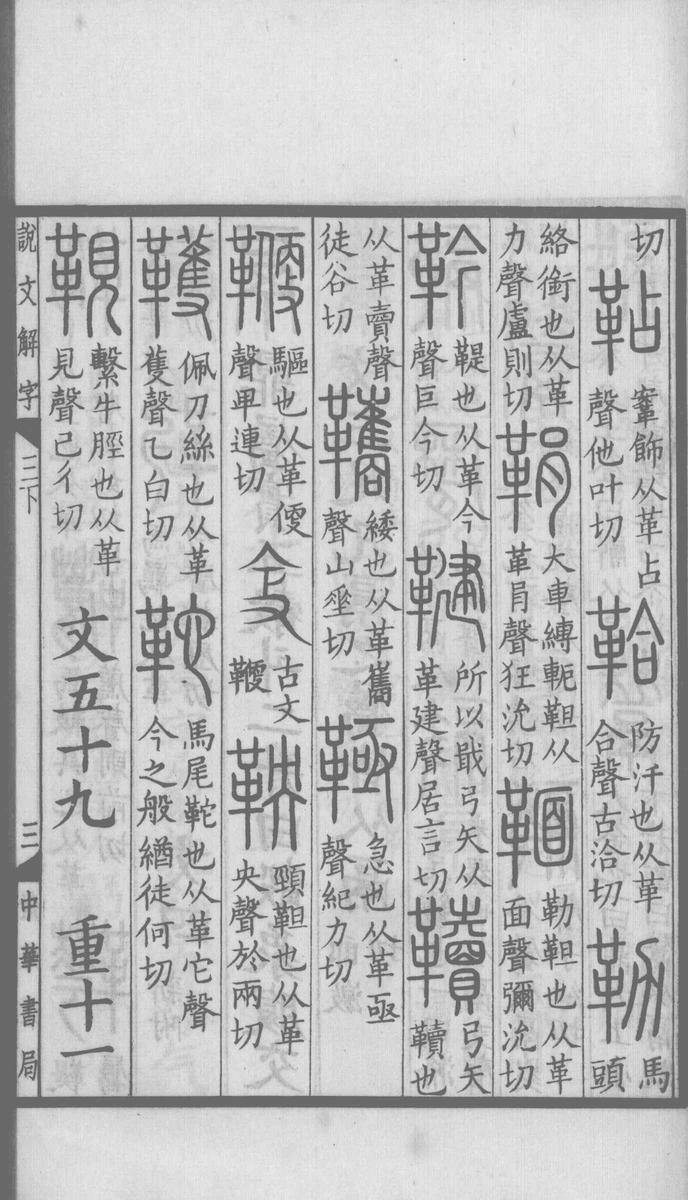 切鞊鞌飾从革占聲他叶切鞈防汗也从革合聲古洽切勒馬頭
絡銜也从革力聲盧則切鞙大車縛軛靼从革肙聲狂沇切䩏勒靼也从革面聲彌沇切
靲鞮也从革今聲巨今切鞬所以戢弓矢从革建聲居言切韇弓矢韇也
从革賣聲徒谷切䪎緌也从革巂聲山垂切䩯急也从革亟聲紀力切
鞭驅也从革㑮聲卑連切古文鞭鞅頸靼也从革央聲於兩切
韄佩刀絲也从革蒦聲乙白切馬尾鞁也从革它聲今之般緧徒何切
䩤繫牛脛也从革見聲己彳切 文五十九 重十一
說文解字 三下 三 中華書局